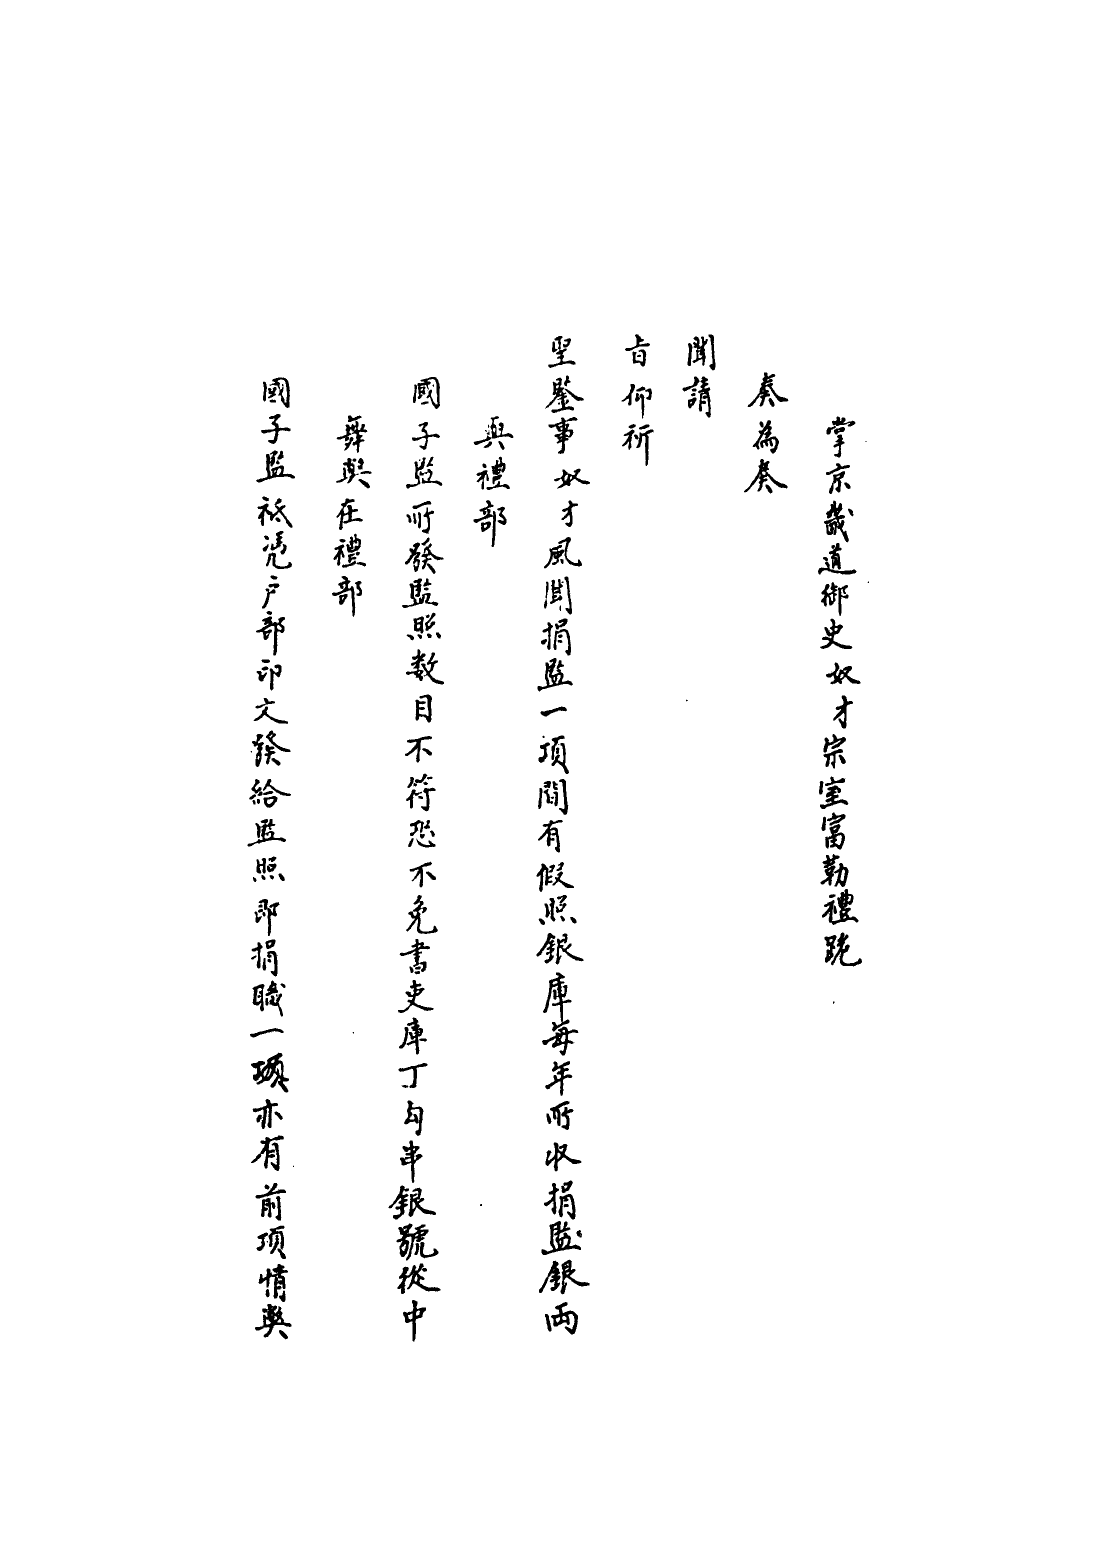 掌京畿道御史奴才宗室富勒禮跪
奏為奏
聞請
旨仰祈
聖鑒事奴才風聞捐監一項間有假照銀庫每年所收捐監銀兩
與禮部
國子監所發監照數目不符恐不免書吏庫丁勾串銀號從中
舞弊在禮部
國子監祗憑戶部印文發給監照即捐職一項亦有前項情弊